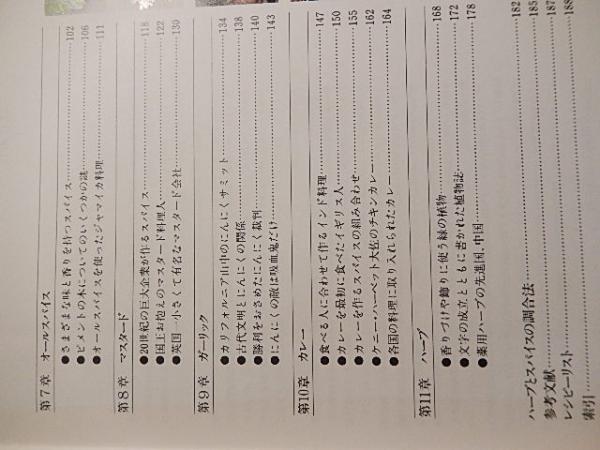 第7章 オールスパイス
●さまざまな味と香りを持つスパイス……102
●ピメントの木についてのいくつかの謎……106
●オールスパイスを使ったジャマイカ料理……111
第8章 マスタード
●20世紀の巨大企業が作るスパイス……118
●国王お抱えのマスタード料理人……122
●英国一小さくて有名なマスタード会社……130
第9章 ガーリック
●カリフォルニア山中のにんにくサミット……134
●古代文明とにんにくの関係……138
●勝利をおさめたにんにく裁判……140
●にんにくの敵は吸血鬼だけ……143
第10章 カレー
●食べる人に合わせて作るインド料理……147
●カレーを最初に食べたイギリス人……150
●カレーを作るスパイスの組み合わせ……155
●ケニー・ハーベット大佐のチキンカレー……162
●各国の料理に取り入れられたカレー……164
第11章 ハーブ
●香りづけや飾りに使う緑の植物……168
●文字の成立とともに書かれた植物誌……172
●薬用ハーブの先進国、中国……178
ハーブとスパイスの調合法……182
参考文献……185
レシピーリスト……187
索引……188